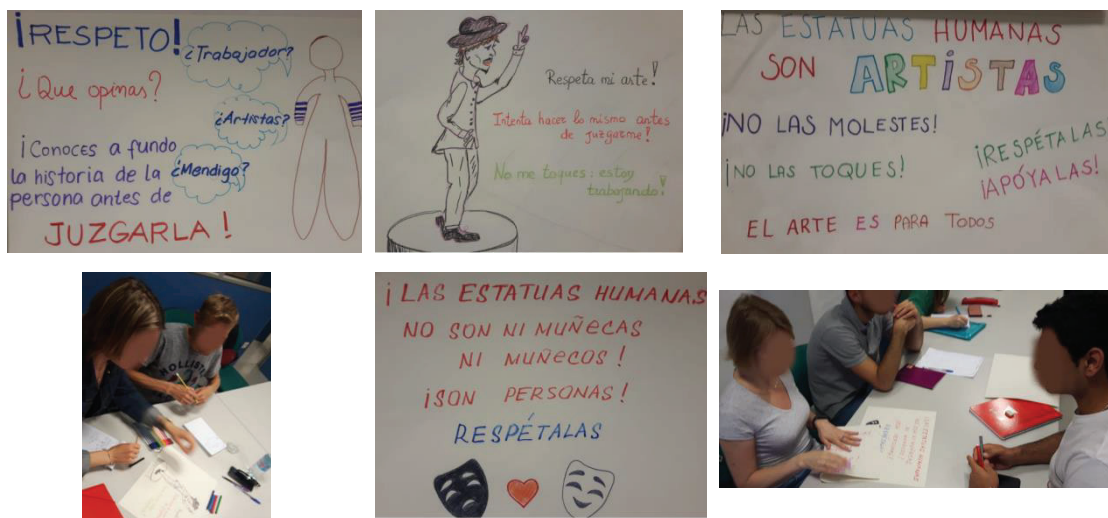 ¡RESPETO!
¿Trabajador?
¿Que opinas?
¿Artistas?
¡Conoces a fundo
la historia de la
¿Mendigo?
persona antes de
JUZGARLA!
Respeta mi arte!
Intenta hacer lo mismo antes
de juzgarme!
No me toques: estoy
trabajando!
LAS ESTATUAS HUMANAS
SON ARTISTAS
¡NO LAS MOLESTES!
¡NO LAS TOQUES!
¡RESPÉTALAS
¡APÓYALAS!
EL ARTE ES PARA TODOS
HOLLISTER
¡LAS ESTATUAS HUMANAS
NO SON NI MUÑECAS
NI MUÑECOS!
¡SON PERSONAS!
RESPÉTALAS